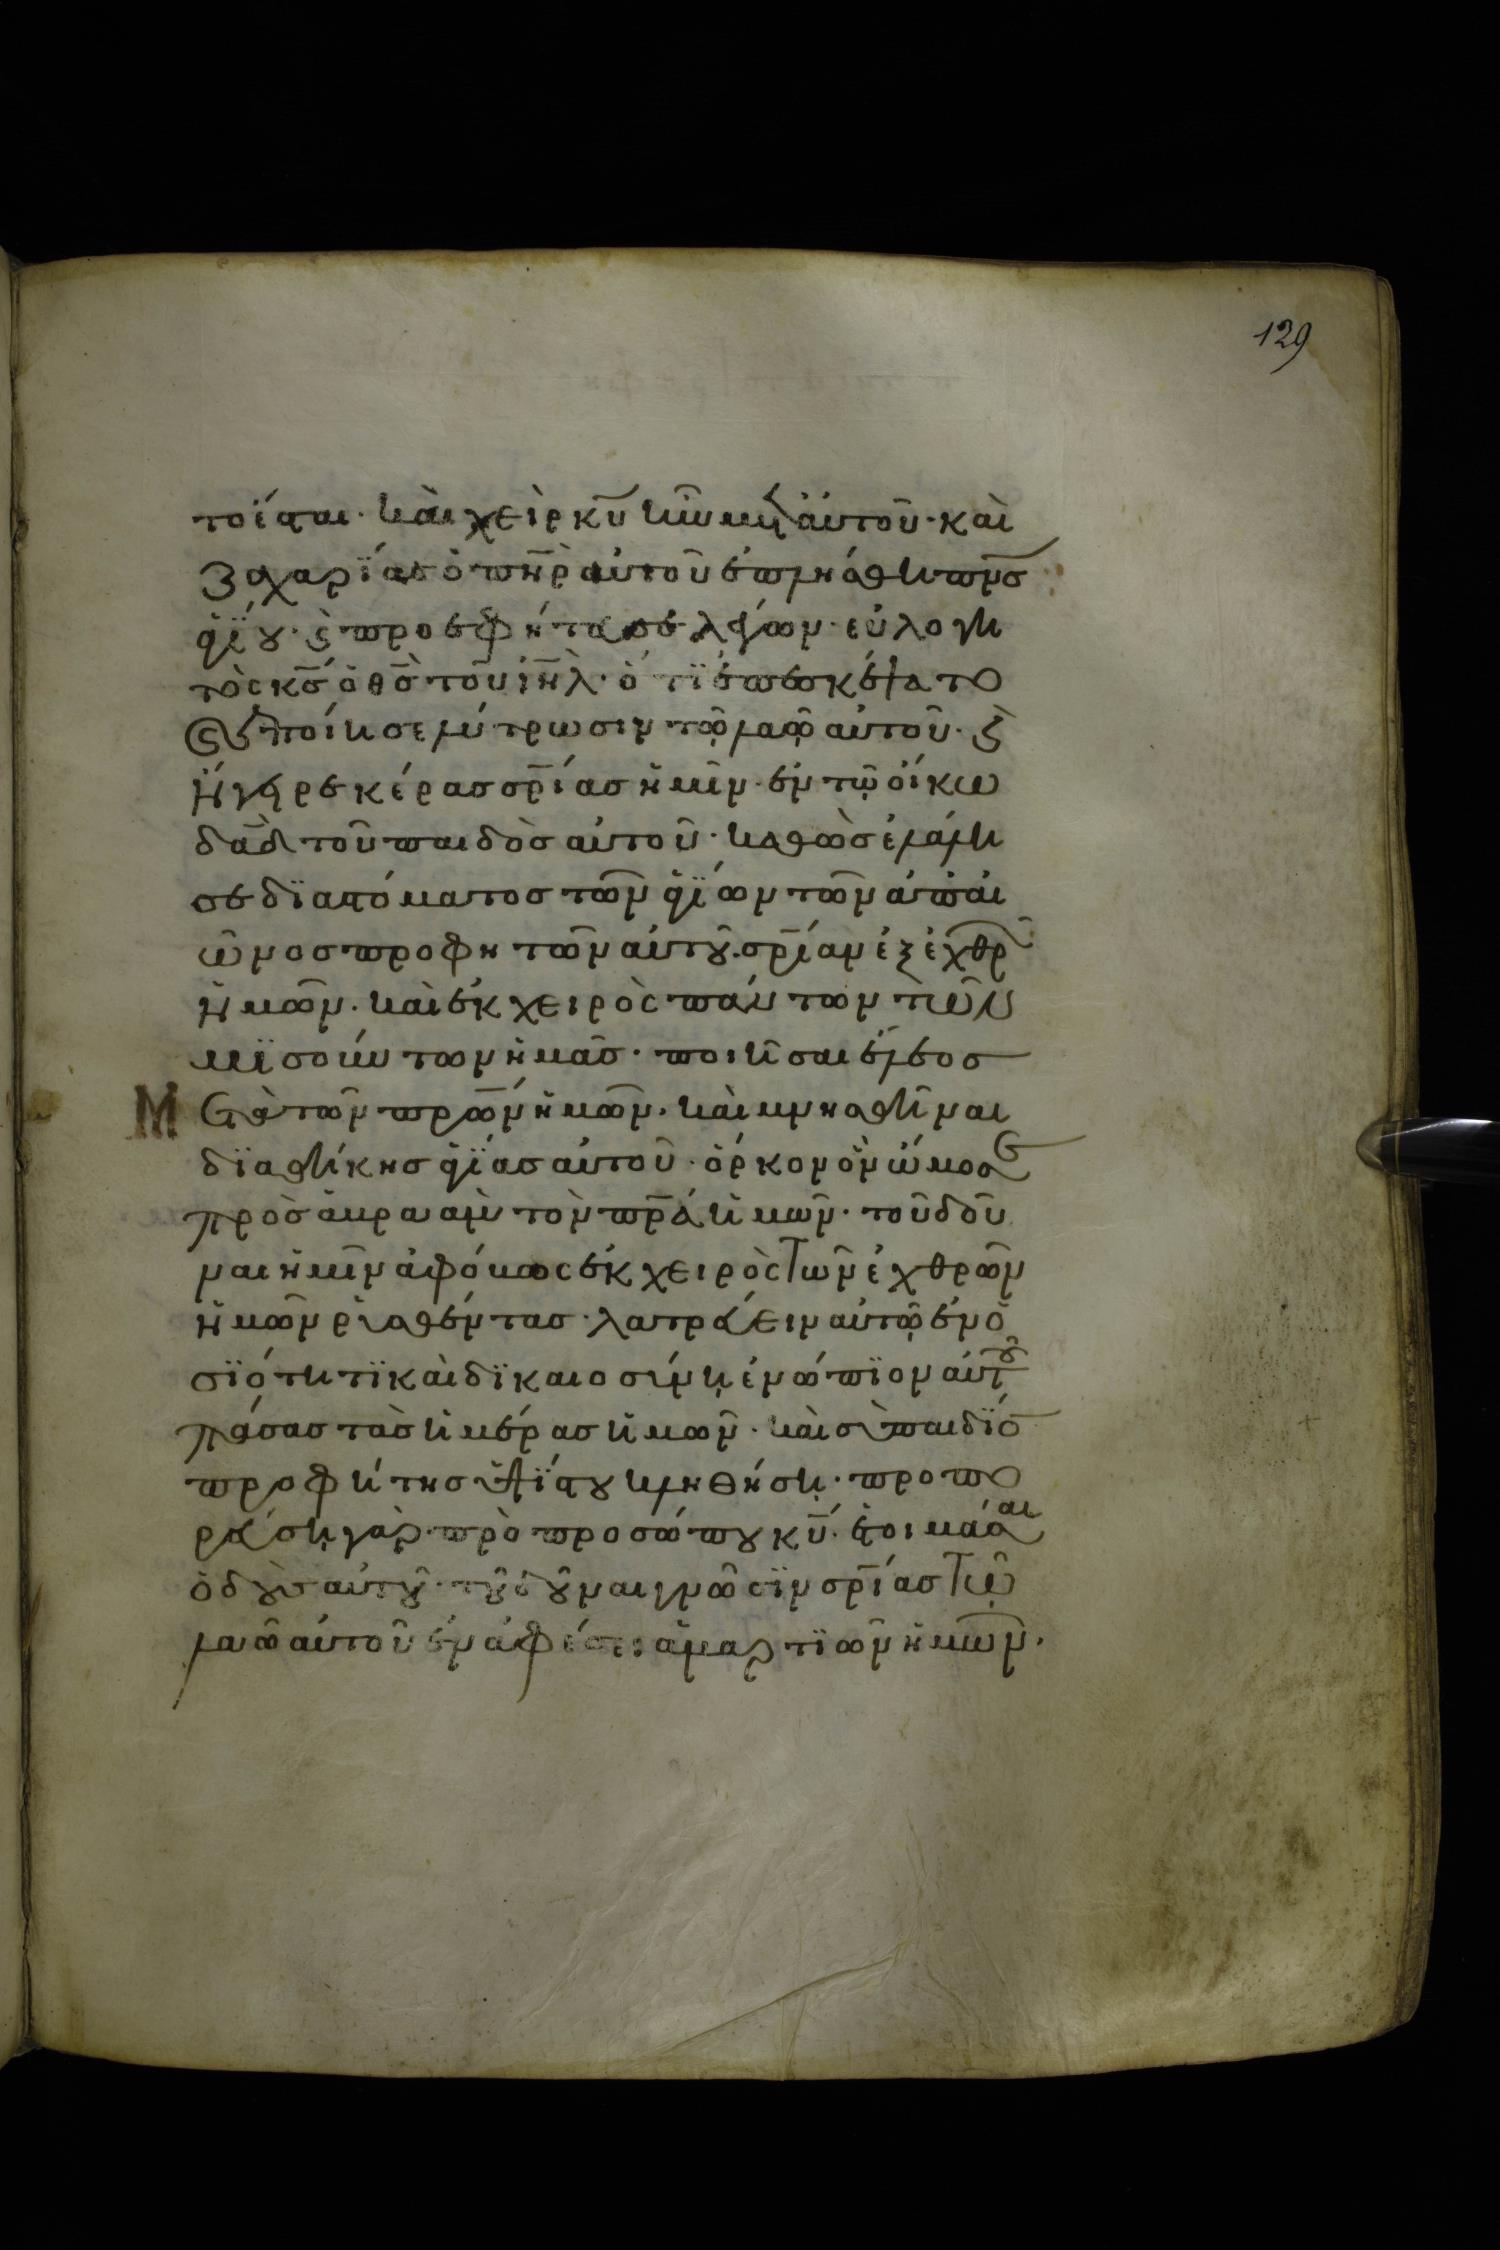 129
τοΐεσται· καὶ χεὶρ κῦ ἦν μετ' ἀυτοῦ· καὶ
Ζαχαρΐας ὁ πη̅ρ ἀυτοῦ ἐπλήσθη πν̅σ
ἁγΐου· ϗ προεφήτευσε λέγων· εὐλογη
τὸς κ̅σ ὁ θ̅σ τοῦ ιη̅λ· ὅτϊ ἐπεσκέψατο
ϗ ἐποίησε λύτρωσιν τῷ λαῷ αὐτοῦ· ϗ
ἤγειρε κέρας σρ̅ίας ἡμῖν· ἐν τῷ οἴκω
δα̅δ τοῦ παιδὸς αὐτοῦ· καθὼς ἐλάλη
σε δϊα στόματος τῶν ἁγΐων τῶν ἀπ' αἰ
ῶνος προφητῶν αὐτοῦ· σρ̅ίαν ἐξ ἐχθρῶν
ἡμῶν· καὶ ἐκ χειρὸς πάντων τῶν
μϊσούντων ἡμᾶς· ποιῆσαι ἔλεος
Μετὰ τῶν πρω̅ν ἡμῶν· καὶ μνησθῆναι
δϊαθήκης ἁγΐας αὐτοῦ· ὅρκον ὃν ὤμοσε
πρὸς ἀβρααμ τὸν πρ̅α ἡμῶν· τοῦ δοῦ
ναι ἡμῖν ἀφόβως ἐκ χειρὸς τῶν ἐχθρῶν
ἡμῶν ρυσθέντας· λατρεύειν αὐτῷ ἐν ὁ
σϊότητϊ καὶ δϊκαιοσύνῃ ἐνώπϊον αὐτοῦ
πάσας τὰς ἡμέρας ἡμῶν· καὶ σὺ παιδΐο̅
προφήτης ὑψΐστου κληθήσῃ· προπο
ρεύσῃ γὰρ πρὸ προσώπου κυ̅· ἑτοιμάσαι
ὁδοὺς αὐτοῦ· τοῦ δοῦναι γνῶσϊν σρ̅ίας τῷ
λαῷ αὐτοῦ ἐν ἀφέσει ἁμαρτϊῶν ἡμῶν·